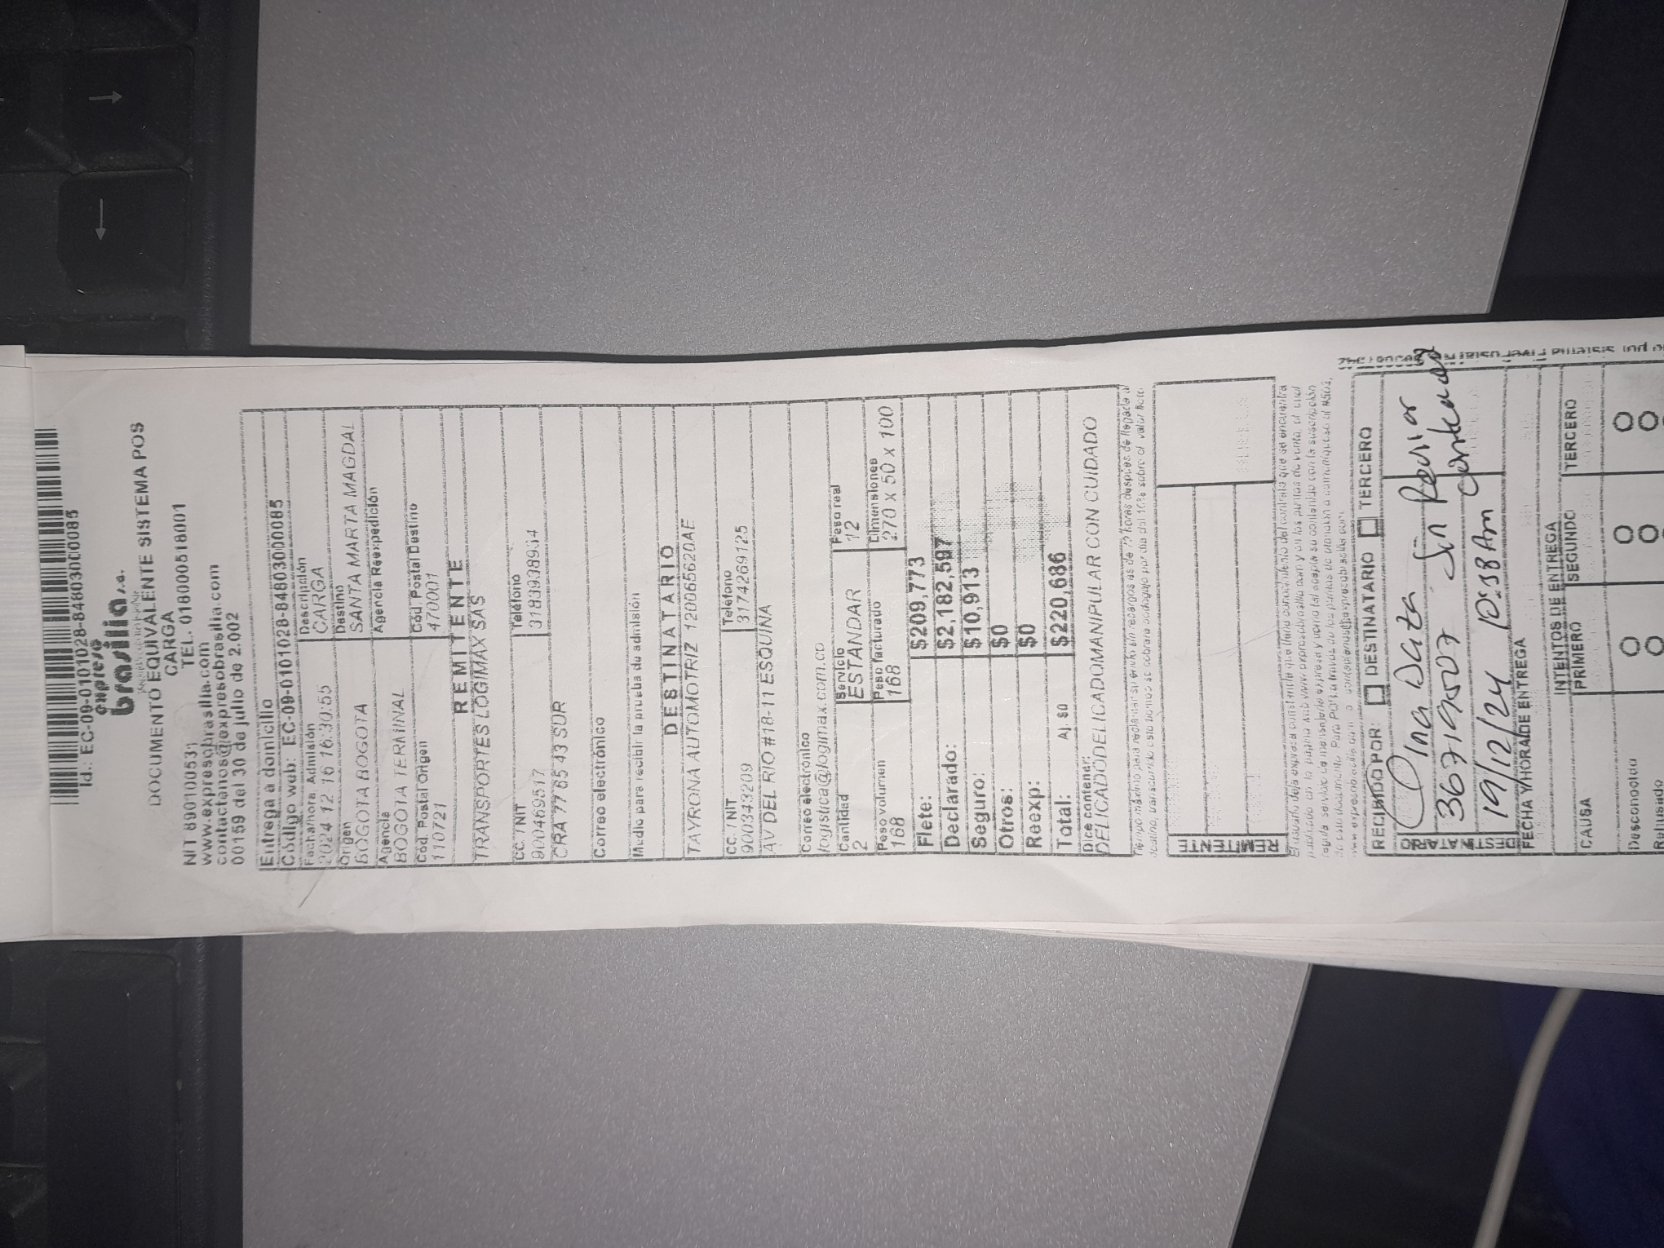 Id.: EC-09-0101028-8480300C0085
expreso
brasilia s.a.
DOCUMENTO EQUIVALENTE SISTEMA POS
CARGA
NIT 89010053
TEL. 018000518001
www.expresobrasilia.com
contactenos@expresobrasilia.com
00159 del 30 de julio de 2.002
Entrega a domicilio
Código web: EC-09-0101028-8480300C0085
Fecha/hora Admisión
Descripción
2024 12 16 16:30:55
CARGA
Origen
Destino
BOGOTA BOGOTA
SANTA MARTA MAGDAL
Agencia
Agencia Reexpedición
BOGOTA TERMINAL
Cód. Postal Origen
Cód. Postal Destino
110721
470001
REMITENTE
TRANSPORTES LOGIMAX SAS
CC. / NIT
Teléfono
900469517
3183938934
CRA 77 65 43 SUR
Correo electrónico
Medio para recibir la prueba de admisión
DESTINATARIO
TAVRONA AUTOMOTRIZ 120065620AE
CC. / NIT
Teléfono
900343209
31742691 25
AV DEL RIO #18-11 ESQUINA
Correo electrónico
logistica@logimax.com.co
Cantidad
Servicio
Peso real
2
ESTANDAR
12
Peso volumen
Peso facturado
Dimensiones
168
168
270 x 50 x 100
Flete: $209,773
Declarado: $2,182,597
Seguro: $10,913
Otros: $0
Reexp: $0
Total: Aj. $0 $220,686
Dice contener:
DELICADODELICADOMANIPULAR CON CUIDADO
REMITENTE
RECIBIDO POR: DESTINATARIO TERCERO
Pina Data Sin Revisar
36719507 Sin Contenido
19/12/24 10:58 Am
FECHA Y HORA DE ENTREGA
INTENTOS DE ENTREGA
CAUSA
PRIMERO
SEGUNDO
TERCERO
Desconocido
Rehusado